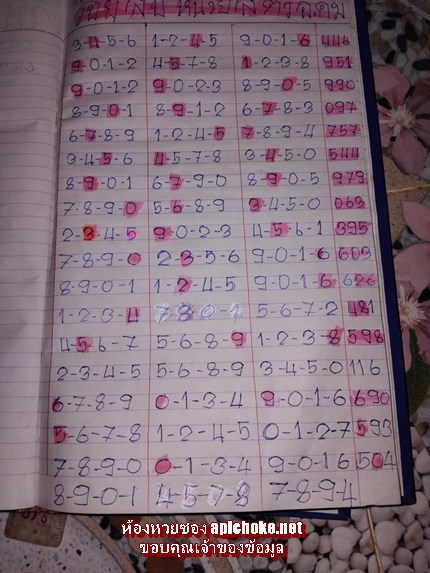 3-4-5-6 1-2-4-5 9-0-1-6 446
9-0-1-2 4-5-7-8 1-2-3-8 951
9-0-1-2 9-0-2-3 8-9-0-5 990
8-9-0-1 8-9-1-2 6-7-8-3 097
6-7-8-9 1-2-4-5 7-8-9-4 757
3-4-5-6 4-5-7-8 3-4-5-0 544
8-9-0-1 6-7-9-0 8-9-0-5 979
7-8-9-0 5-6-8-9 3-4-5-0 063
2-3-4-5 9-0-2-3 4-5-6-1 395
7-8-9-0 2-3-5-6 9-0-1-6 603
8-9-0-1 1-2-4-5 9-0-1-6 626
1-2-3-4 5-6-7-2 481
4-5-6-7 5-6-8-9 1-2-3-8 598
2-3-4-5 5-6-8-9 3-4-5-0 116
6-7-8-9 0-1-3-4 9-0-1-6 690
5-6-7-8 1-2-4-5 0-1-2-7 593
7-8-9-0 0-1-3-4 9-0-1-6 504
8-9-0-1 4-5-7-8 7-8-9-4
ห้องหวยซอง apichoke.net
ขอบคุณเจ้าของข้อมูล